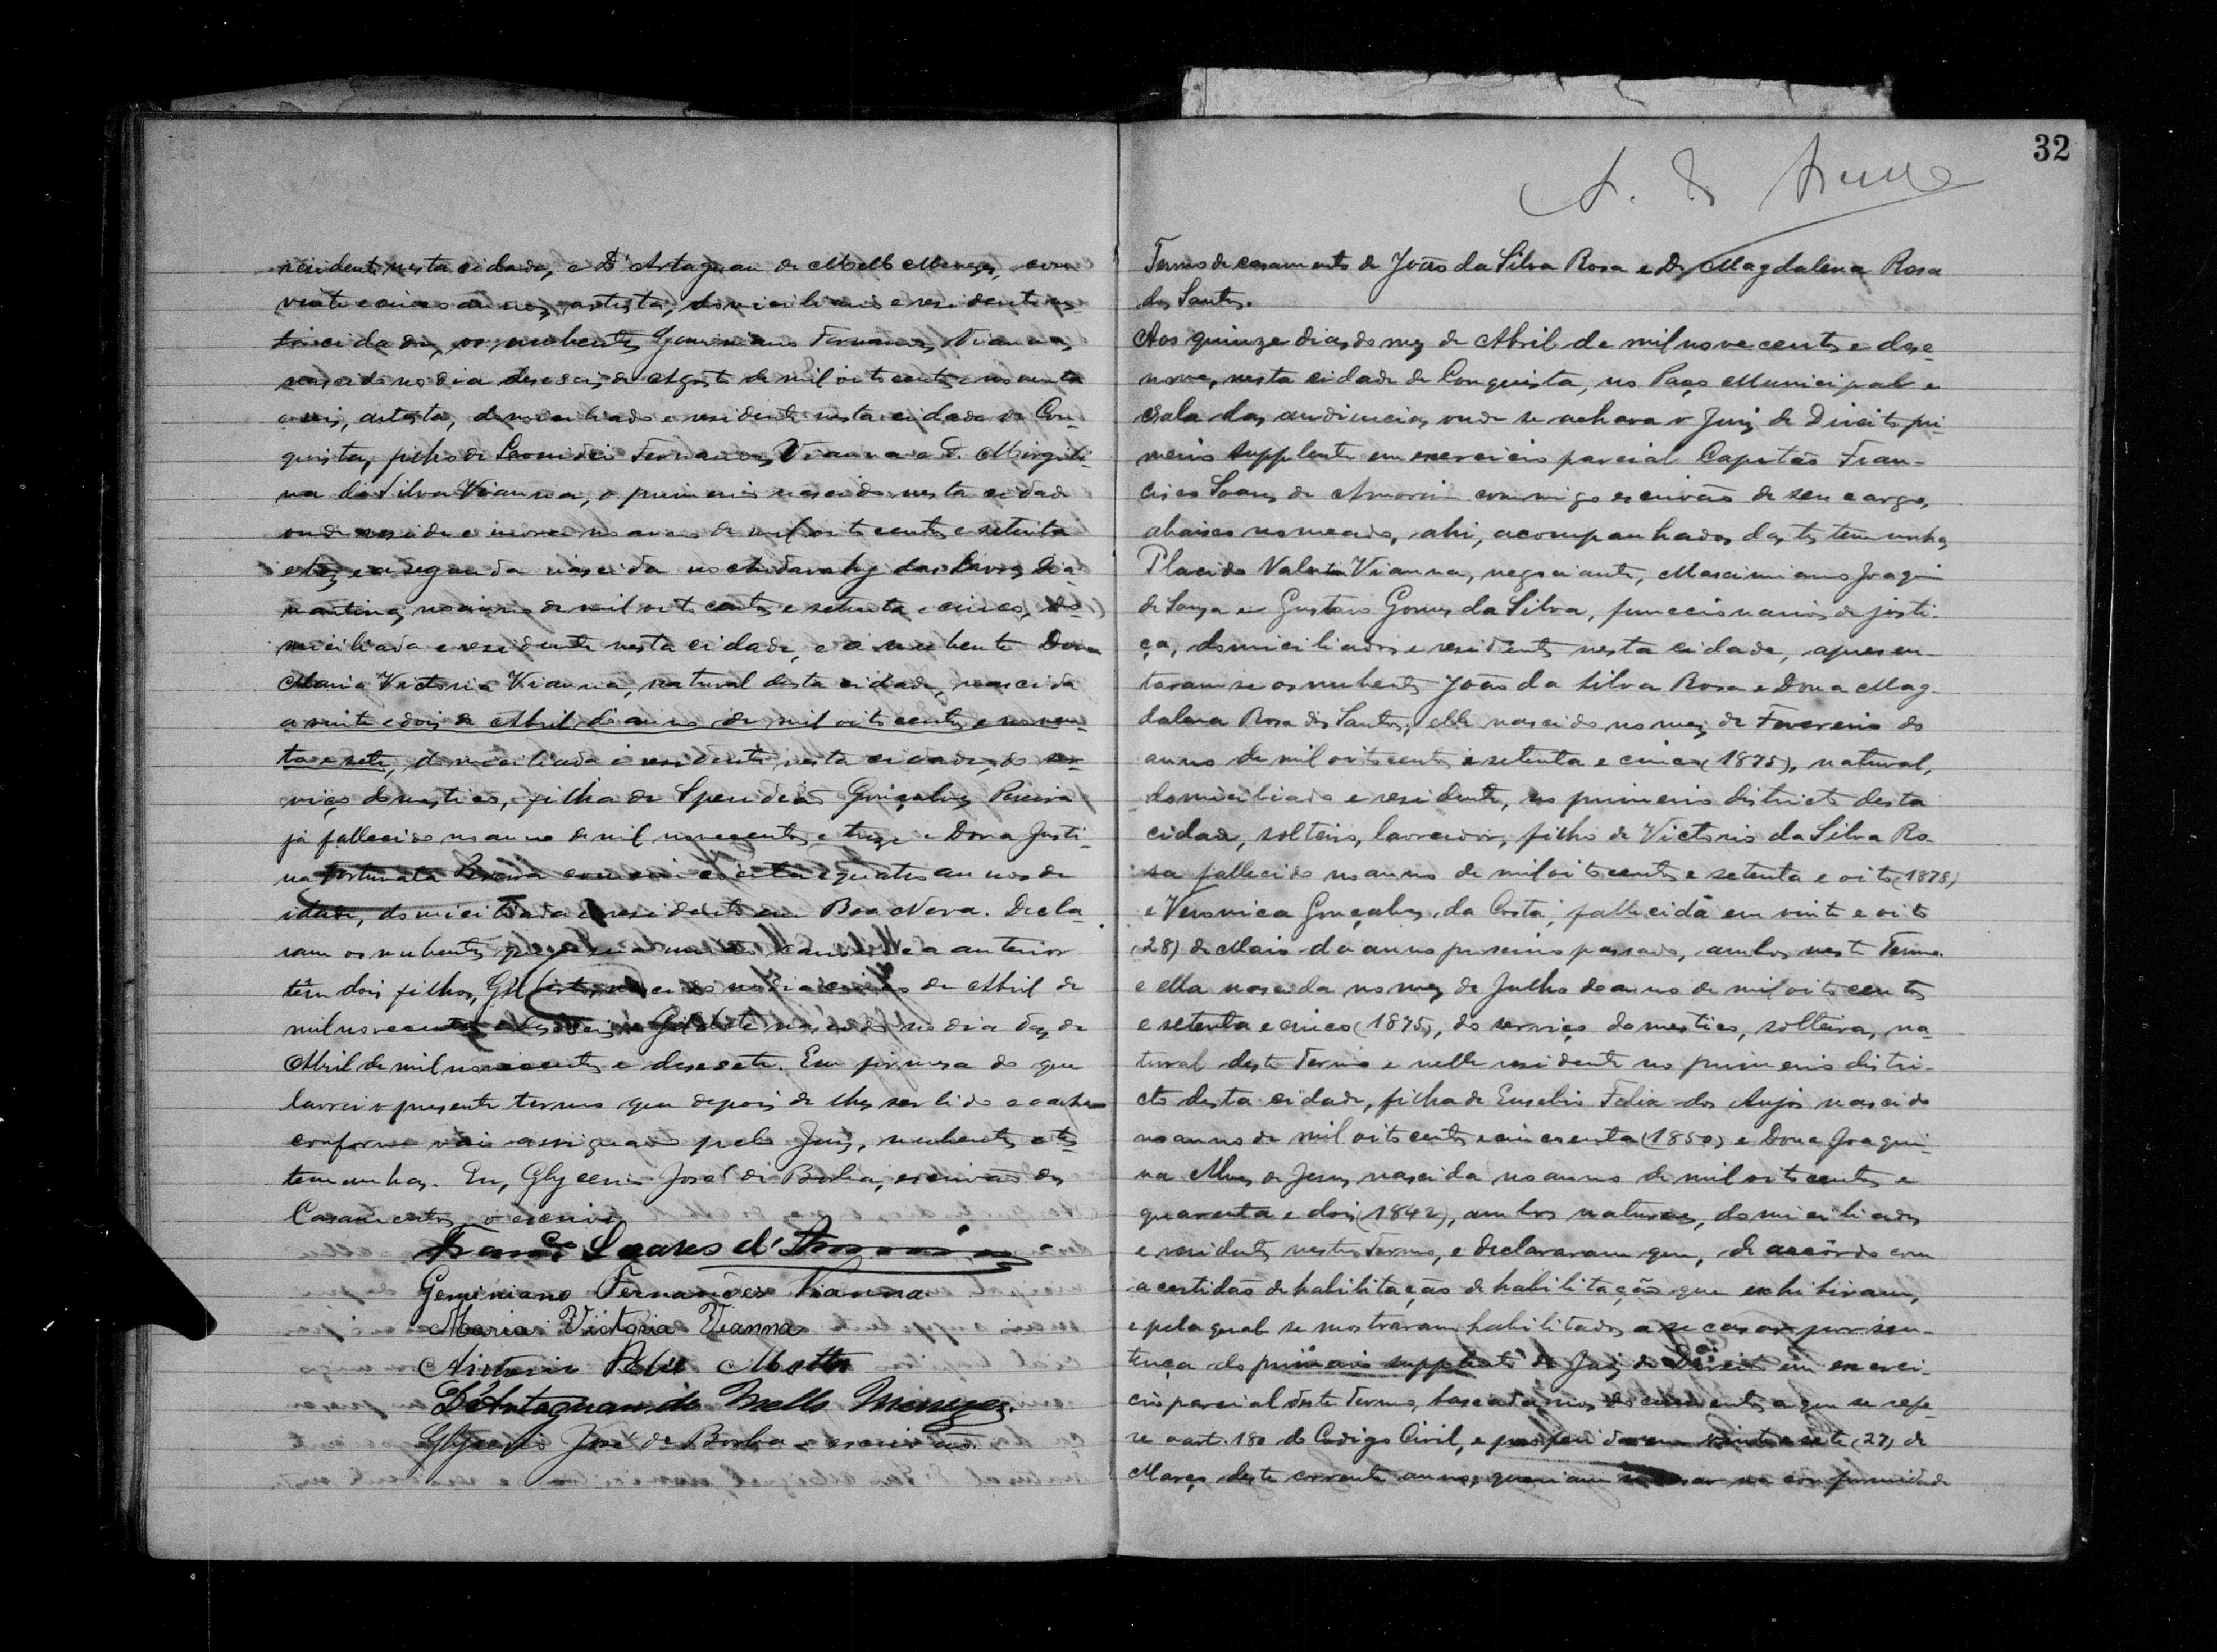 residente nesta cidade, e D'Artagnan de Mello Menezes, com
vinte e cinco annos, artista, domiciliario e residente nes-
ta cidade, os nubentes Geminiano Fernandes Vianna,
nascido no dia deseseis de Agosto de mil oito centos e noventa
e seis, artista, domiciliado e residente nesta cidade de Con-
quista, filho de Leonidio Fernandes Vianna e D. Mirguli-
na da Silva Vianna, o primeiro nascido nesta cidade
onde reside e no anno de mil oito centos e setenta
e tres e a segunda nascida no das Lavras Dia-
mantinas no anno de mil oito centos e setenta e cinco, do-
miciliada e residente nesta cidade, e a nubente Dona
Maria Victoria Vianna, natural desta cidade, nascida
a vinte e dois de Abril do anno de mil oito centos e noven-
ta e sete, domiciliada e residente nesta cidade, do ser-
viço domestico, filha de Speridião Gonçalves Pereira
já fallecido no anno de mil novecentos e treze e Dona Justi-
na Fortunata Pereira com coenta e quatro annos de
idade, domiciliada e residente em Boa Nova. Decla-
ram os nubentes que anterior
têm dois filhos, nascido no dia cinco de Abril de
mil novecentos e deseseis, e Gildete nascido no dia dez de
Abril de mil novecentos e desesete. Em firmesa do que
lavrei o presente termo que depois de lhes ser lido e acharem
conforme vai assignado pelo Juiz, nubentes e tes-
temunhas. Eu, Glycerio José de Borba, escrivão dos
Casamentos, o escrevi.
Franco Soares d'Amorim
Geminiano Fernandes Vianna.
Maria Victoria Vianna
Antonio Motta
D'Artagnan de Mello Menezes.
Glycerio José de Borba - escrivão.
32
Termo de casamento de João da Silva Rosa e D. Magdalena Rosa
dos Santos.
Aos quinze dias do mez de Abril de mil novecentos e dese-
nove, nesta cidade de Conquista, no Paço Municipal e
Sala das audiencias, onde se achava o Juiz de Direito pri-
meiro supplente em exercicio parcial Capitão Fran-
cisco Soares de Amorim commigo escrivão de seu cargo,
abaixo nomeado, ahi, acompanhados das testemunhas
Placido Valentim Vianna, negociante, Maximiano Joaquim
de Souza e Gustavo Gomes da Silva, funccionarios da justi-
ça, domiciliados e residentes nesta cidade, apresen-
taram-se os nubentes João da Silva Rosa e Dona Mag-
dalena Rosa dos Santos; elle nascido no mez de Fevereiro do
anno de mil oitocentos e setenta e cinco (1875), natural,
domiciliado e residente, no primeiro districto desta
cidade, solteiro, lavrador, filho de Victorio da Silva Ro-
sa fallecido no anno de mil oitocentos e setenta e oito (1878)
e Veronica Gonçalves da Costa, fallecida em vinte e oito
(28) de Maio do anno proximo passado, ambos neste Termo.
e ella nascida no mez de Julho do anno de mil oitocentos
e setenta e cinco (1875), do serviço domestico, solteira, na-
tural deste Termo e nelle residente no primeiro distri-
cto desta cidade, filha de Eusebio Felix dos Anjos nascido
no anno de mil oitocentos e cincoenta (1850) e Dona Joaqui-
na Alves de Jesus, nascida no anno de mil oitocentos e
quarenta e dois (1842), ambos naturaes, domiciliados
e residentes neste Termo, e declararam que, de accôrdo com
a certidão de habilitação de habilitação que exhibiram,
e pela qual se mostraram habilitados a se casar por sen-
tença do primeiro supplente do Juiz de Direito em exerci-
cio parcial deste Termo, baseada nos documentos a que se refe-
re o art. 180 do Codigo Civil, e proferida em vinte e sete (27) de
Março deste corrente anno, queriam se casar na conformidade